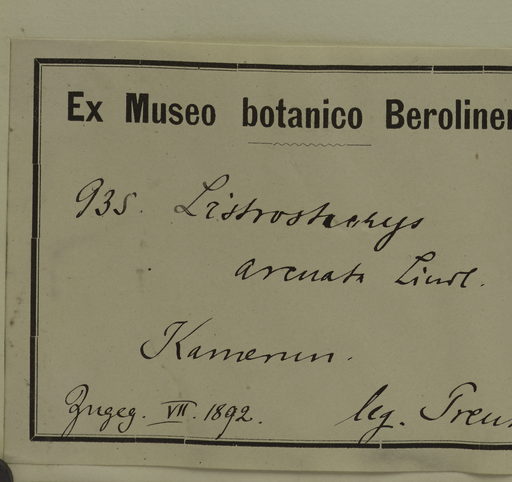 Ex Museo botanico Beroliner
935. Listrostachys
arcuata Lindl.
Kamerun.
Zugeg. VII. 1892. leg. Preu